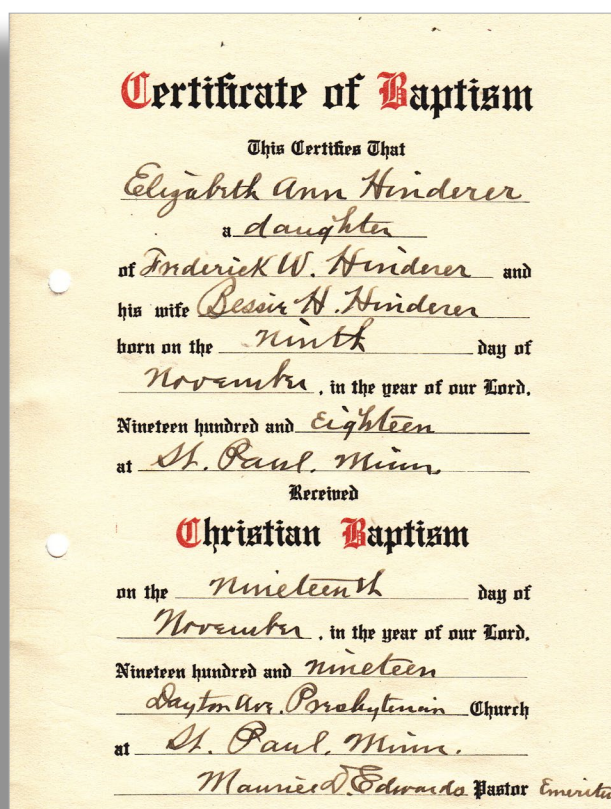 Certificate of Baptism
This Certifies That
Elizabeth Ann Hinderer
a daughter
of Frederick W. Hinderer and
his wife Bessie H. Hinderer
born on the ninth day of
November, in the year of our Lord,
Nineteen hundred and eighteen
at St. Paul. Minn.
Received
Christian Baptism
on the nineteenth day of
November, in the year of our Lord,
Nineteen hundred and nineteen
Dayton Ave. Presbyterian Church
at St. Paul. Minn.
Maurice D. Edwards Pastor Emeritus